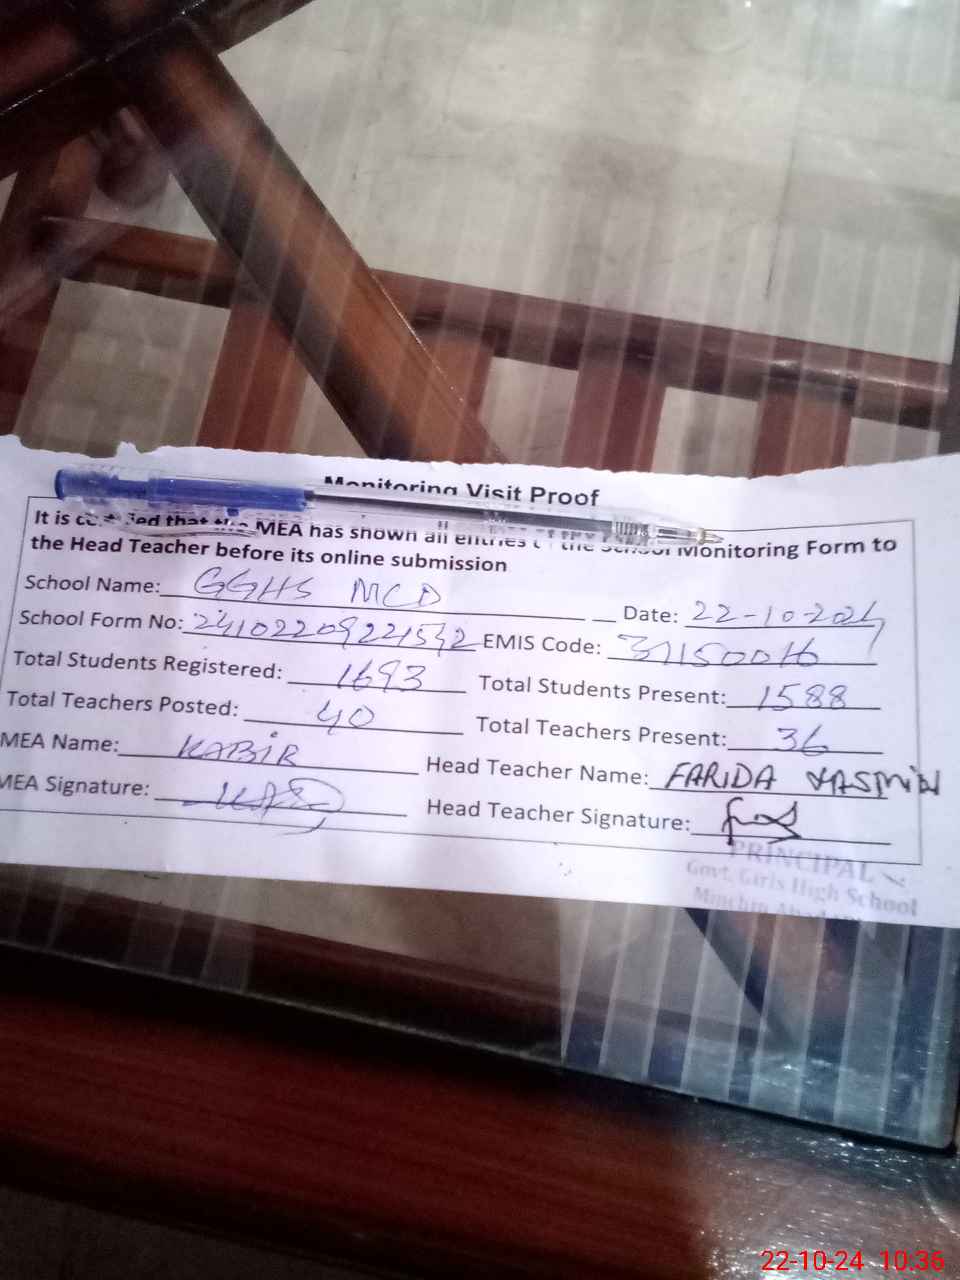 Monitoring Visit Proof
It is certified that the MEA has shown all entries of the School Monitoring Form to
the Head Teacher before its online submission
School Name: GGHS MCD Date: 22-10-2024
School Form No: 24102209221542 EMIS Code: 31150016
Total Students Registered: 1693 Total Students Present: 1588
Total Teachers Posted: 40 Total Teachers Present: 36
MEA Name: KABIR Head Teacher Name: FARIDA YASMIN
MEA Signature: Head Teacher Signature:
PRINCIPAL
Govt. Girls High School
Minchin Abad
22-10-24 10:36